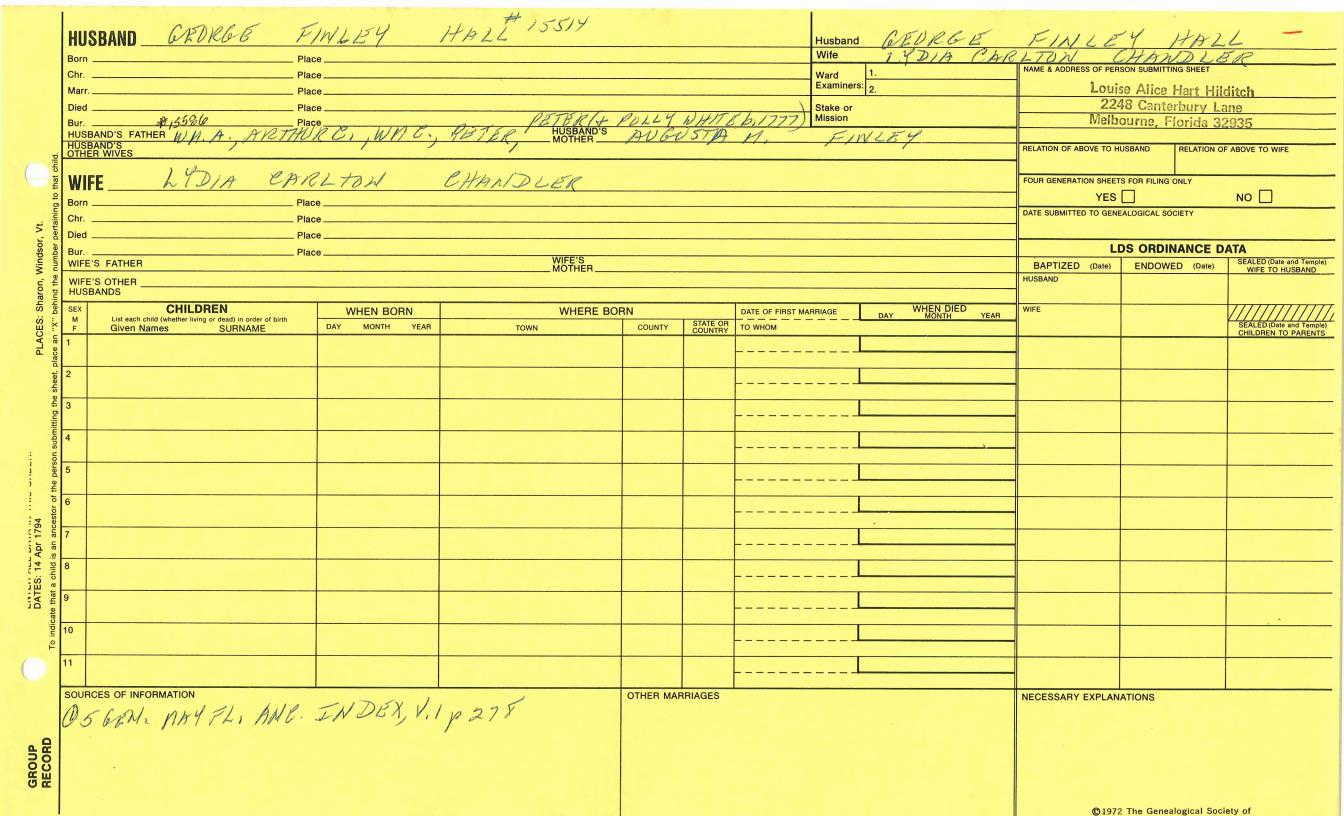 HUSBAND GEORGE FINLEY HALL #15514
Born Place
Chr. Place
Marr. Place
Died Place
Bur. #15586 Place PETER (+ POLLY WHITE b, 1777)
HUSBAND'S FATHER WM. A., ARTHUR C., WM C., PETER, HUSBAND'S MOTHER AUGUSTA M. FINLEY
HUSBAND'S OTHER WIVES
WIFE LYDIA CARLTON CHANDLER
Born Place
Chr. Place
Died Place
Bur. Place
WIFE'S FATHER WIFE'S MOTHER
WIFE'S OTHER HUSBANDS
Husband GEORGE FINLEY HALL
Wife LYDIA CARLTON CHANDLER
Ward Examiners: 1. 2.
Stake or Mission
NAME & ADDRESS OF PERSON SUBMITTING SHEET
Louise Alice Hart Hilditch
2248 Canterbury Lane
Melbourne, Florida 32935
RELATION OF ABOVE TO HUSBAND RELATION OF ABOVE TO WIFE
FOUR GENERATION SHEETS FOR FILING ONLY
YES NO
DATE SUBMITTED TO GENEALOGICAL SOCIETY
LDS ORDINANCE DATA
BAPTIZED (Date) ENDOWED (Date) SEALED (Date and Temple) WIFE TO HUSBAND
HUSBAND
WIFE
SEALED (Date and Temple) CHILDREN TO PARENTS
SEX M F
CHILDREN
List each child (whether living or dead) in order of birth
Given Names SURNAME
WHEN BORN
DAY MONTH YEAR
WHERE BORN
TOWN COUNTY STATE OR COUNTRY
DATE OF FIRST MARRIAGE
TO WHOM
WHEN DIED
DAY MONTH YEAR
1
2
3
4
5
6
7
8
9
10
11
SOURCES OF INFORMATION
① 5 GEN. MAY FL. ANC. INDEX, V. 1 p 278
OTHER MARRIAGES
NECESSARY EXPLANATIONS
©1972 The Genealogical Society of
PLACES: Sharon, Windsor, Vt.
DATES: 14 Apr 1794
To indicate that a child is an ancestor of the person submitting the sheet, place an "X" behind the number pertaining to that child.
GROUP RECORD